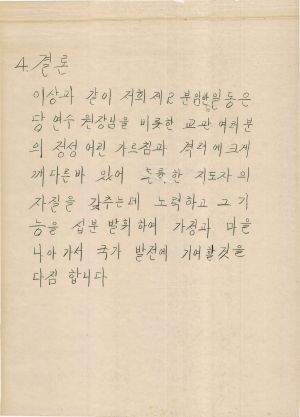 4. 결론
이상과 같이 저희 제 2 분임반 일동은
당 연수 원장님을 비롯한 교관 여러분
의 정성 어린 가르침과 격려에 크게
깨 다른바 있어 훌륭한 지도자의
자질을 갖추는데 노력하고 그 기
능을 십분 발휘하여 가정과 마을
나아가서 국가 발전에 기여할것을
다짐 합니다